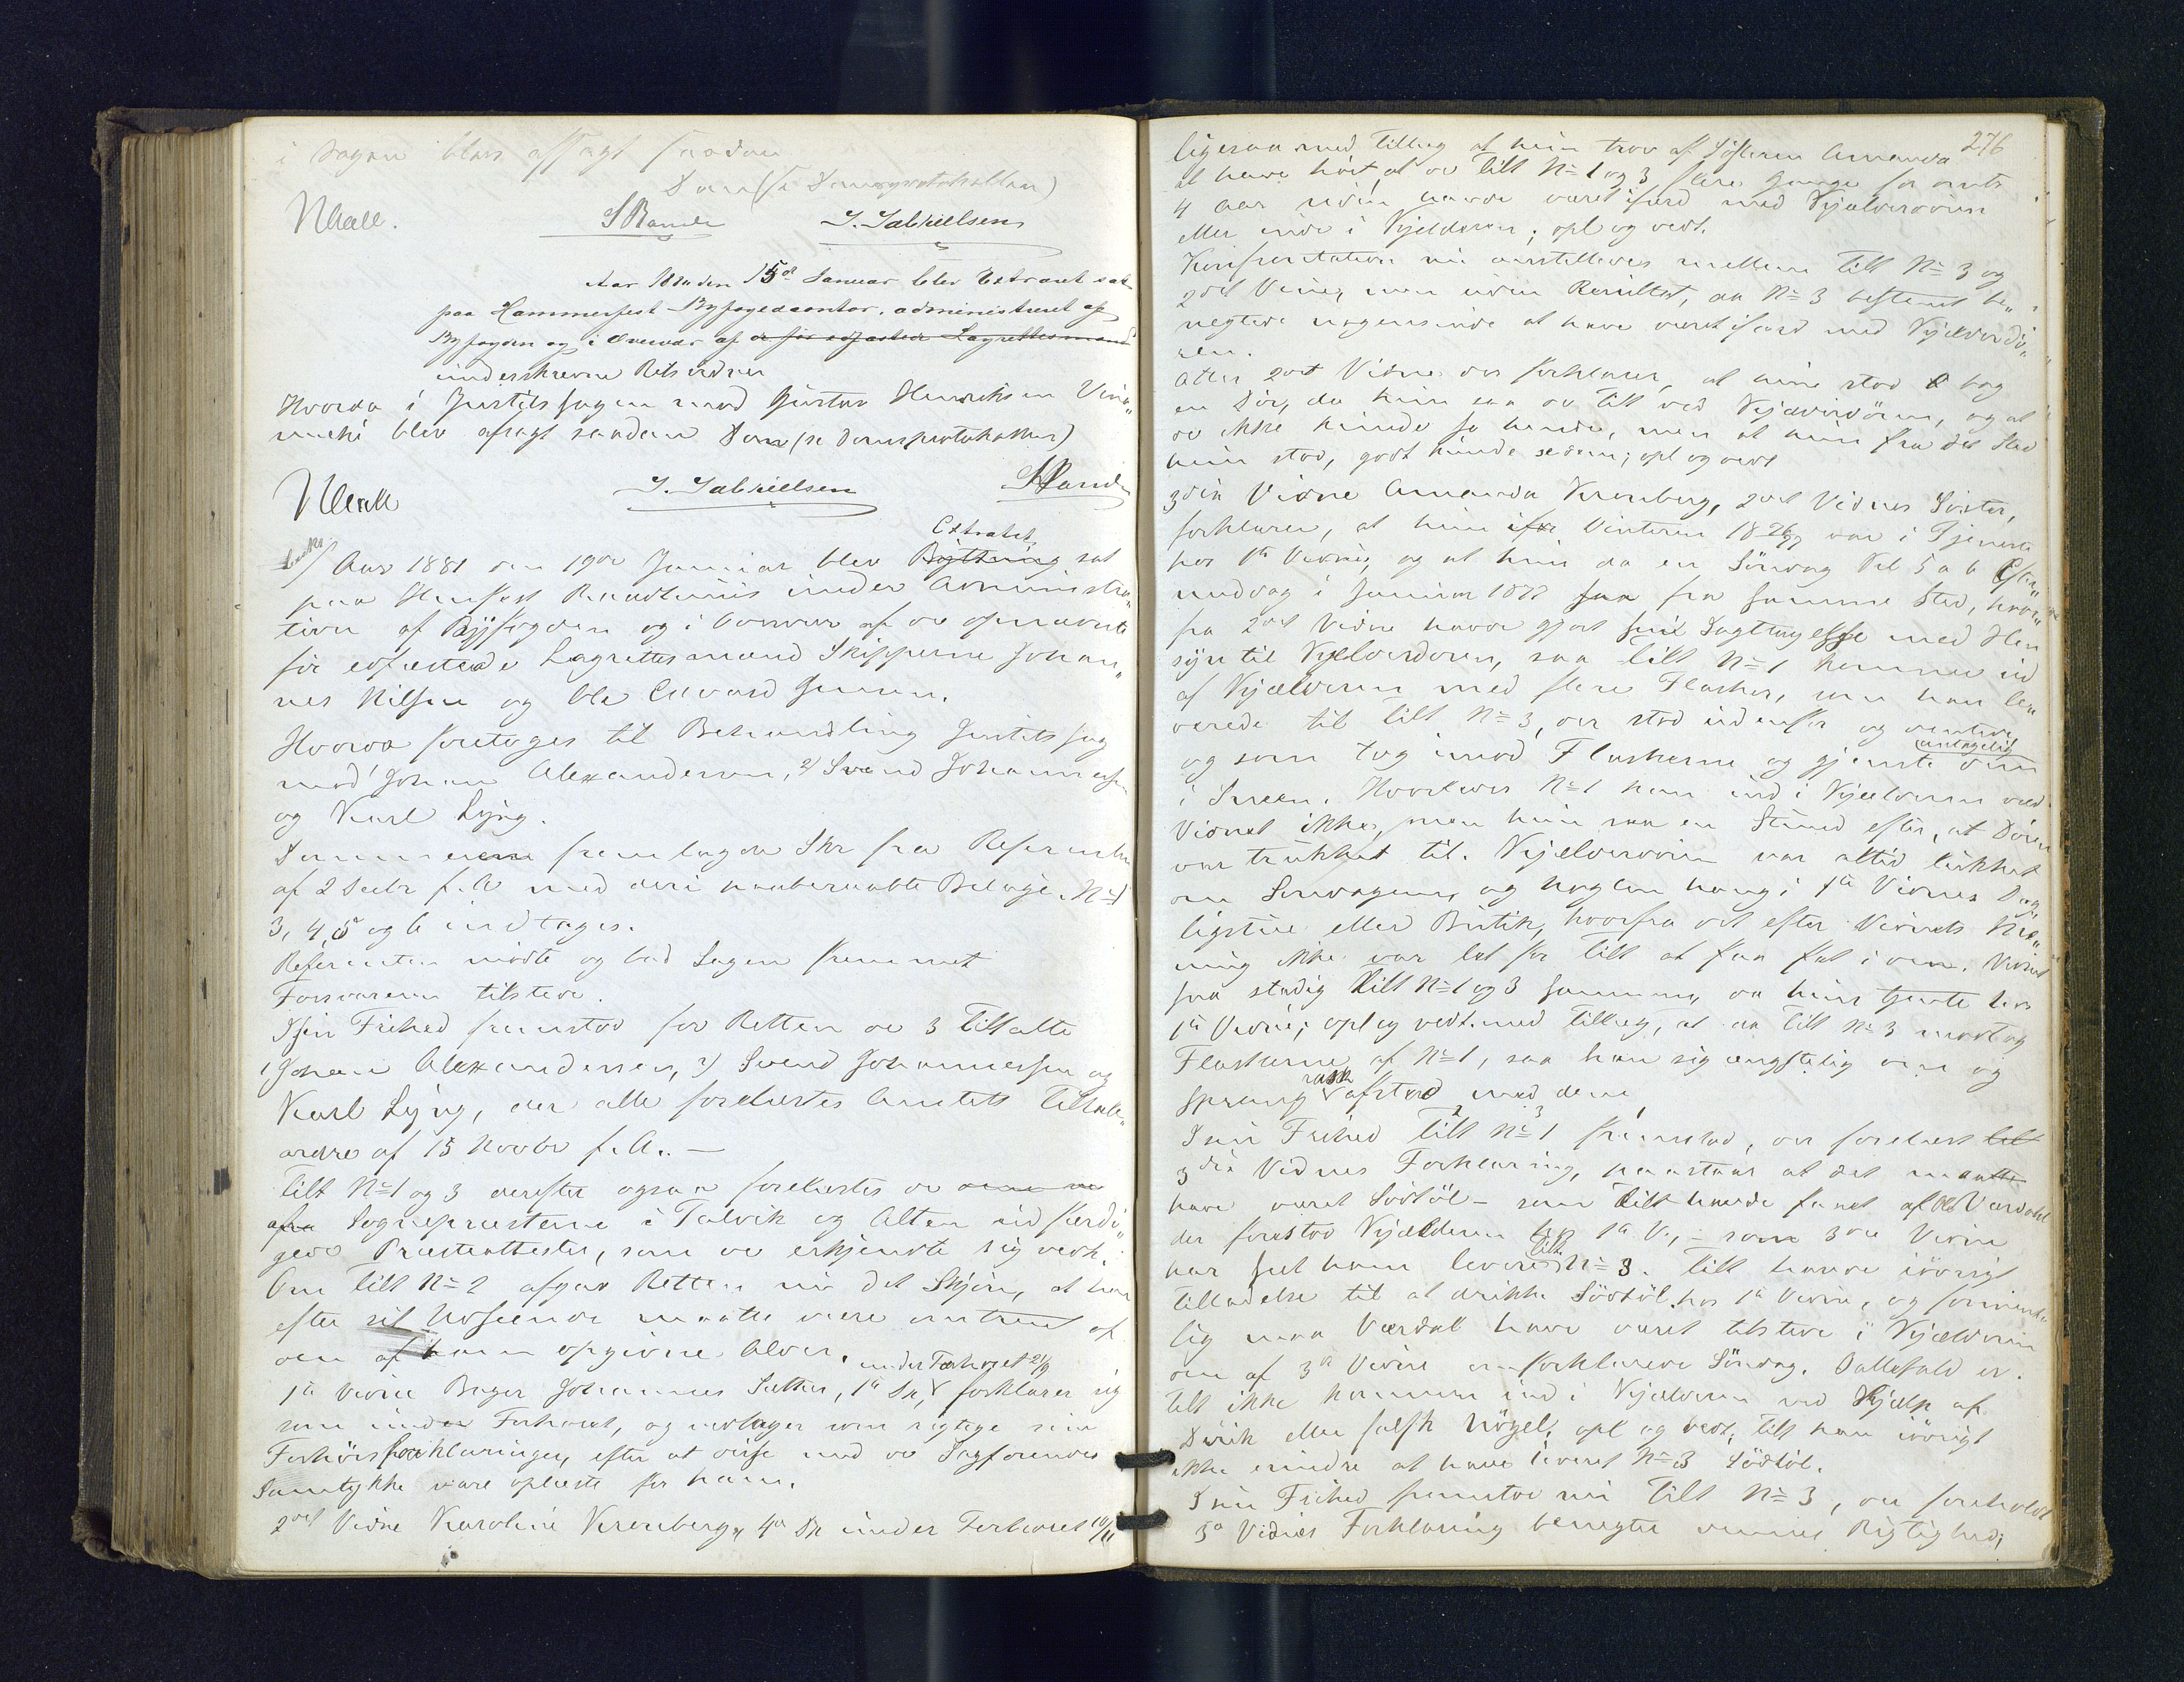 i Sagen blev afsagt saadan
Dom (se Domsprotokollen)
SRande J. Gabrielsen
Aar 1881 den 15de Januar blev Extraret sat
paa Hammerfest Byfogedcontor, administreret af
Byfogden og i Overvær af de før edfæstede Lagrettesmænd
underskrevne Retsvidner
Hvorda i Justitssagen mod Gustav Henriksen
blev afsagt saadan Dom (se Domsprotokollen)
J. Gabrielsen SRande
Extraret
Aar 1881 den 19de Januar blev Bything sat
paa Hmfest Raadhuus under Administra„
tion af Byfogden og i Overvær af de opnævnte
før edfæstede Lagrettesmænd Skipperne Johan„
nes Nilsen og Ole Edvard Jensen.
Hvorda foretoges til Behandling Justitssag
mod 1 Johan Alexandersen, 2) Svend Johannessen
og Karl Lyng.
Dommeren fremlagde Skr fra Referenten
af 2 Decbr f. A med deri paaberaabte Bilage. No 1
3, 4, 5 og 6 indtages.
Referenten mødte og bad Sagen fremmet
Forsvareren tilstede.
I sin Frihed fremstod for Retten de 3 Tiltalte
1 Johan Alexandersen, 2) Svend Johannessen og
Karl Lyng, der alle forelæstes Amtets Tiltale„
ordre af 15 Novbr f. A. —
Tilt No 1 og 3 derefter ogsaa forelæstes de
fra Sognepræsterne i Talvik og Alten udfærdi„
gede Præsteattester, som de erkjendte sig vedk.
Om Tilt No 2 afgav Retten nu det Skjøn, at han
efter sit Udseende maatte være omtrent af
den af ham opgivne Alder.
under Forhøret 2/9
1te Vidne Bager Johannes Sæther, 1te Dp, forklarer sig
som under Forhøret, og vedtager som rigtige sine
Forhørsforklaringer, efter at disse med de Sagførendes
Samtykke vare oplæste for ham.
2det Vidne Karoline Kronberg, 4de Dp under Forhøret 10/11
276
ligesaa med Tillæg at hun tror af Søsteren Amanda
at have hørt, at de Tilt No 1 og 3 flere Gange for omtr
4 Aar siden havde været ifærd med Kjælderdøren
eller inde i Kjelderen; opl og vedt.
Konfrontation nu anstilledes mellem Tilt No 3 og
2det Vidne, men uden Resultat, da No 3 bestemt be„
negtede nogensinde at have været ifærd med Kjælderdø„
ren.
Atter 2det Vidne der forklarer, at hun stod bag
en Dør, da hun saa de Tilt ved Kjælderdøren, og at
de ikke kunde se hende, men at hun fra det Sted
hun stod, godt kunde se dem; opl og vedt
3die Vidne Amanda Kronberg, 2det Vidnes Søster,
forklarer, at hun Vinteren 1876/77 var i Tjeneste
hos 1te Vidne, og at hun da en Søndag Kl 5 a 6 Efter„
middag i Januar 1877 fra samme Sted, hvor„
fra 2det Vidne havde gjort sin Iagttagelse med Hen
syn til Kjælderdøren, saa Tilt No 1 komme ud
af Kjælderen med flere Flasker, som han le„
verede til Tilt No 3, der stod udenfor og ventede
og som tog imod Flaskerne og gjemte dem antagelig
i Sneen. Hvorledes No 1 kom ind i Kjælderen ved
Vidnet ikke, men hun saa en Stund efter, at Døren
var trukket til. Kjælderdøren var altid lukket
om Søndagene, og Nøglen hang i 1te Vidnes Dag„
ligstue eller Butik, hvorfra det efter Vidnets Me„
ning ikke var let for Tilt at faa fat i den. Vidnet
saa stadig Tilt No 1 og 3 sammen, da hun tjente hos
1te Vidne; opl og vedt. med Tillæg, at da Tilt No 3 modtog
Flaskerne af No 1, saa han sig ængstelig om og
sprang rask afsted med dem.
I sin Frihed Tilt No 1 fremstod, der forelæst
3die Vidnes Forklaring, paastaar at det maatte
have været Sødtøl – som Tilt havde faaet af Værdal
der forestod Kjælderen hos 1te V., – som 3die Vidne
har seet ham levere Tilt No 3. Tilt havde iøvrigt
Tilladelse til at drikke Sødtøl hos 1te Vidne, og formente„
lig maa Værdal have været tilstede i Kjælderen
den af 3de Vidne omforklarede Søndag. Ialdfald er
Tilt ikke kommen ind i Kjælderen ved Hjælp af
Dirik eller falsk Nøgel; opl og vedt; Tilt kan iøvrigt
ikke erindre at have leveret No 3 Sødtøl.
I sin Frihed fremstod nu Tilt No 3, der foreholdt
3de Vidnes Forklaring benegter dennes Rigtighed;